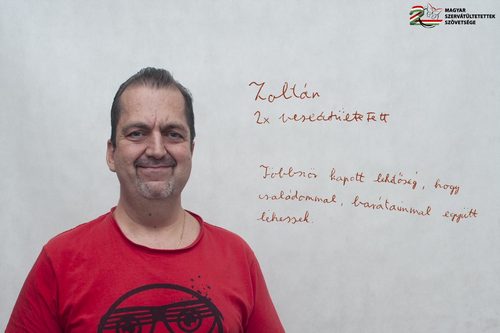 MAGYAR
SZERVÁTÜLTETETTEK
SZÖVETSÉGE
Zoltán
2x veseátültetett
Többször kapott lehetőség, hogy
családommal, barátaimmal együtt
élhessek.